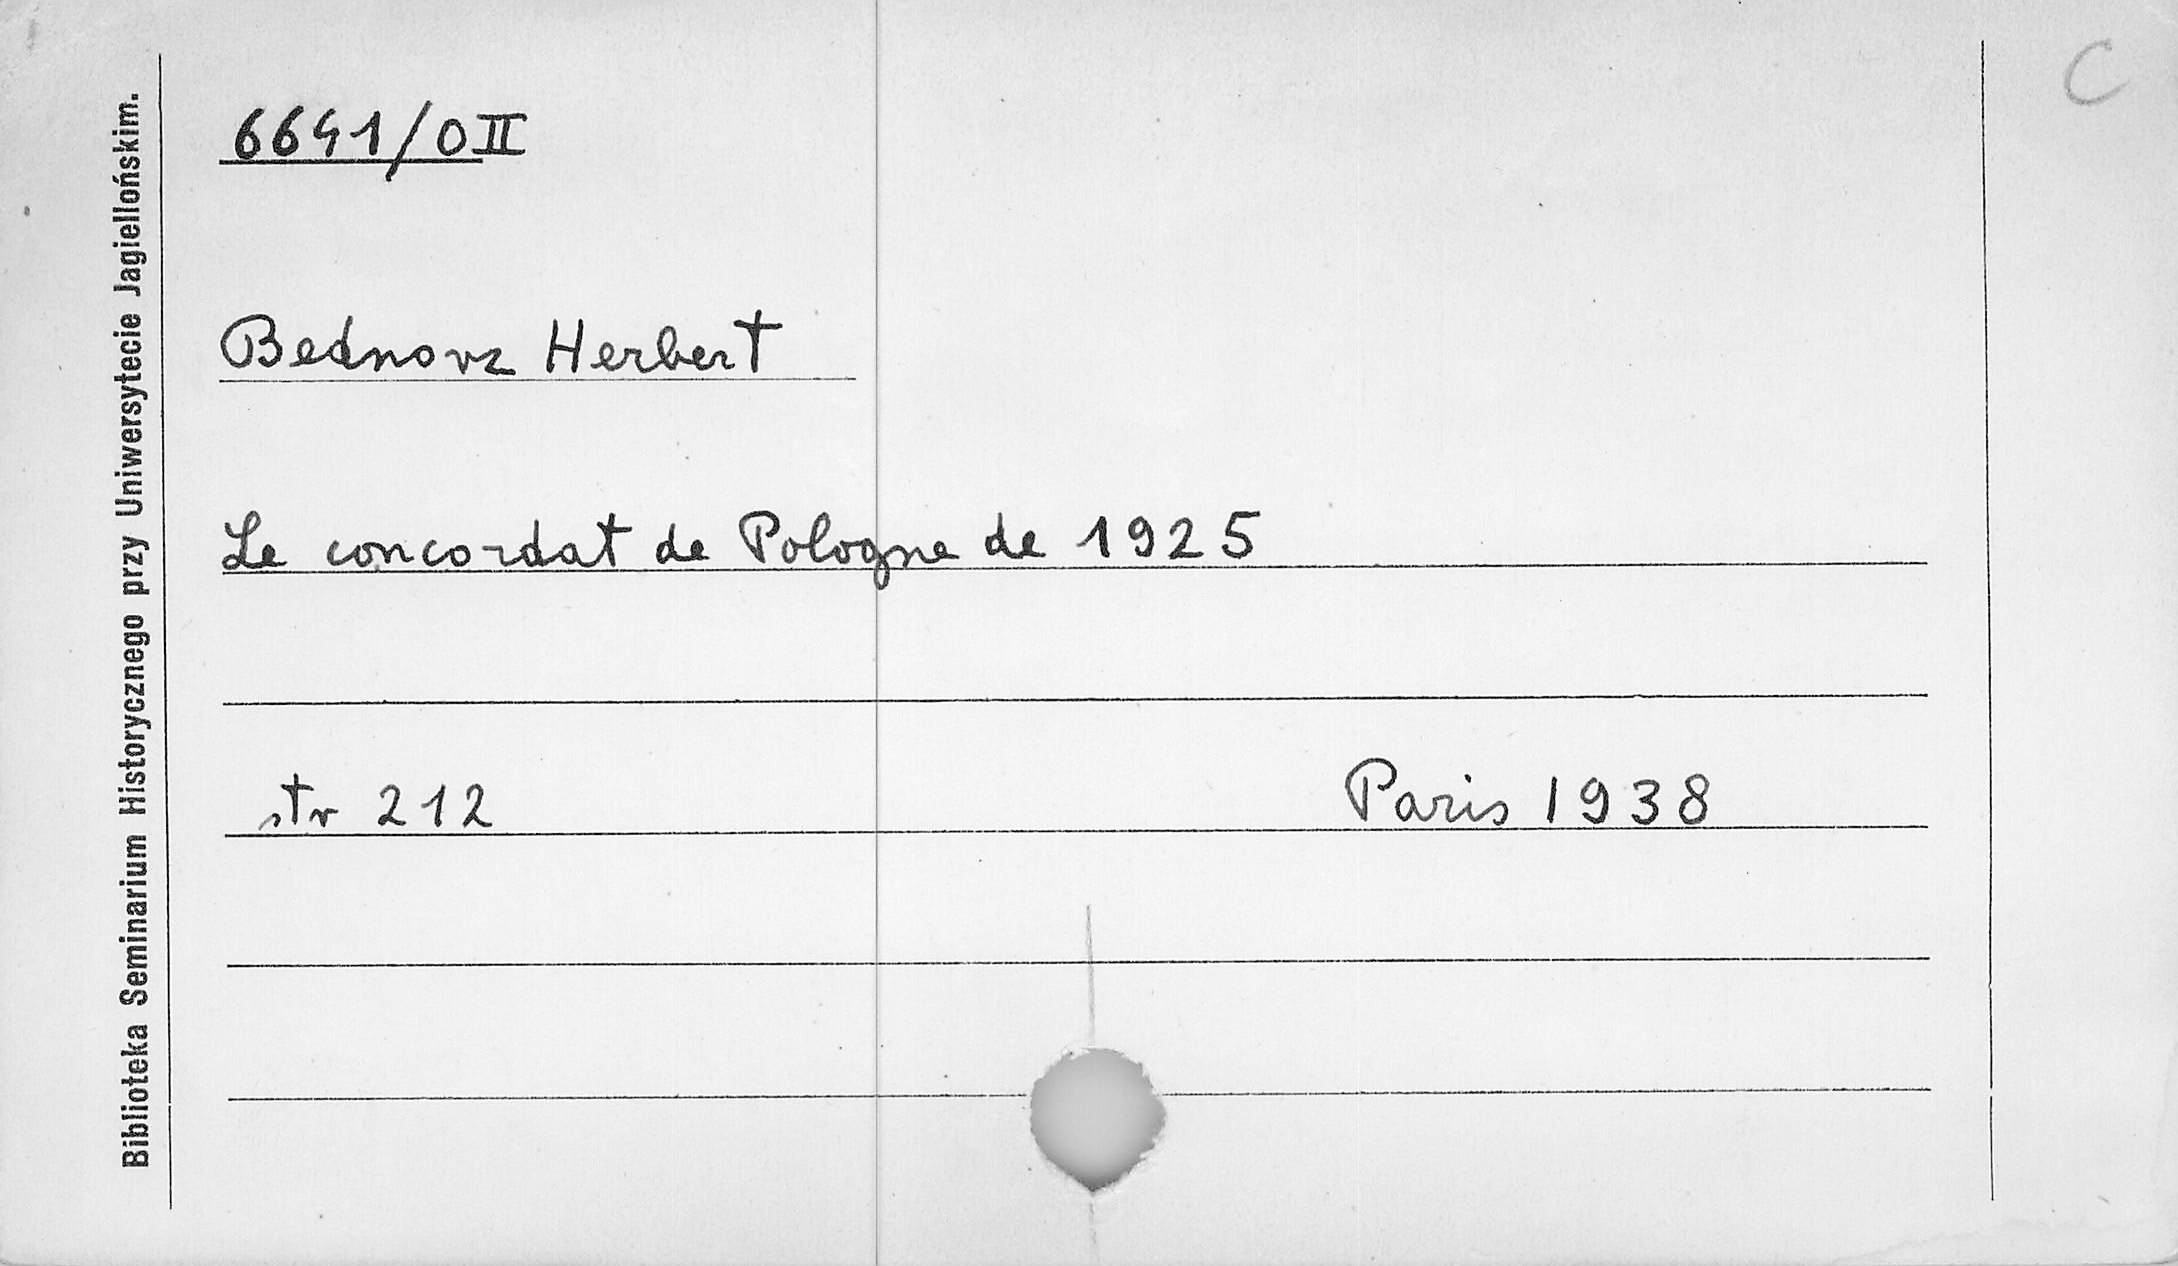 C
6641/0II
Bednorz Herbert
Le concordat de Pologne de 1925
str 212 Paris 1938
Biblioteka Seminarium Historycznego przy Uniwersytecie Jagiellońskim.